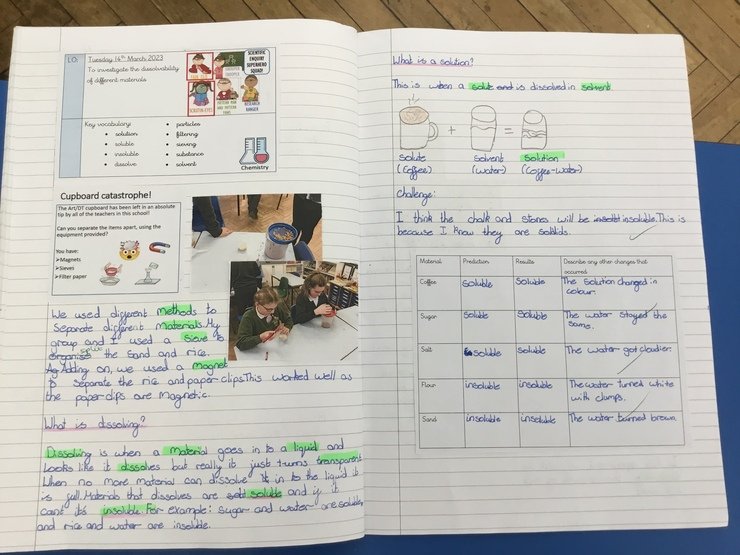 LO:
Tuesday 14th March 2023
To investigate the dissolvability
of different materials
SCIENTIFIC
ENQUIRY
SUPERHERO
SQUAD!
RESEARCH
RANGER
Key vocabulary:
• solution
• soluble
• insoluble
• dissolve
• particles
• filtering
• sieving
• substance
• solvent
Chemistry
Cupboard catastrophe!
The Art/DT cupboard has been left in an absolute
tip by all of the teachers in this school!
Can you separate the items apart, using the
equipment provided?
You have:
➢Magnets
➢Sieves
➢Filter paper
We used different methods to
separate different materials. My
group and I used a sieve to
the sand and rice.
Adding on, we used a magnet
to separate the rice and paper clips. This worked well as
the paperclips are magnetic.
What is dissolving?
Dissolving is when a material goes in to a liquid and
looks like it dissolves but really it just turns transparent
When no more material can dissolve in to the liquid it
is full. Materials that dissolves are soluble and if it
cant it's insoluble. For example: sugar and water are soluble,
and rice and water are insoluble.
What is a solution?
This is when a solute is dissolved in solvent
+ =
solute solvent solution
(Coffee) (water) (coffee-water)
Challenge:
I think the chalk and stones will be insoluble. This is
because I know they are solids.
Material Prediction Results Describe any other changes that
occurred
Coffee soluble soluble The solution changed in
colour.
Sugar soluble soluble The water stayed the
same.
Salt soluble soluble The water got cloudier.
Flour insoluble insoluble The water turned white
with clumps.
Sand insoluble insoluble The water turned brown